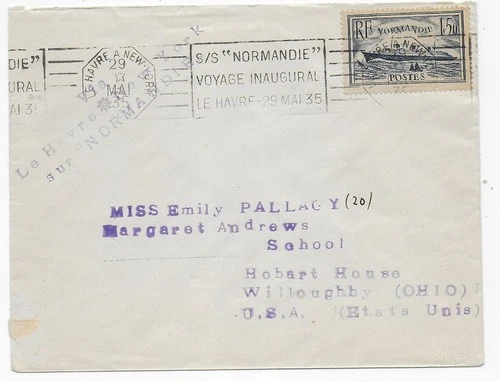 RF NORMANDIE 1F50
POSTES
DIE"
URAL
AI 35
LE HAVRE A NEW-YORK
29
MAI
35
S/S "NORMANDIE"
VOYAGE INAUGURAL
LE HAVRE-29 MAI 35
Le Havre New York
sur "NORMANDIE"
MISS Emily PALLAGY (20)
Margaret Andrews
School
Hobart House
Willoughby (OHIO)
U.S.A. (Etats Unis)